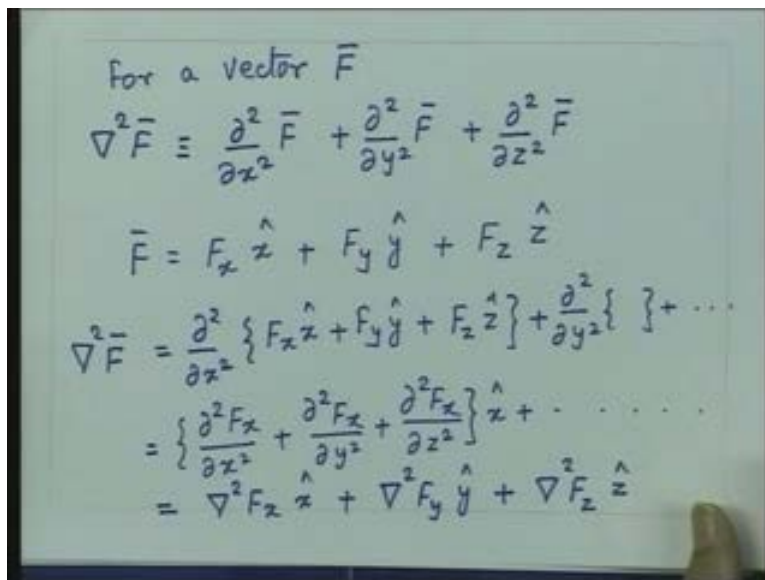 For a vector F̄
∇²F̄ ≡ ∂²/∂x² F̄ + ∂²/∂y² F̄ + ∂²/∂z² F̄
F̄ = Fₓ x̂ + F_y ŷ + F_z ẑ
∇²F̄ = ∂²/∂x² { Fₓ x̂ + F_y ŷ + F_z ẑ } + ∂²/∂y² { } + ···
= { ∂²Fₓ/∂x² + ∂²Fₓ/∂y² + ∂²Fₓ/∂z² } x̂ + · · · · ·
= ∇²Fₓ x̂ + ∇²F_y ŷ + ∇²F_z ẑ